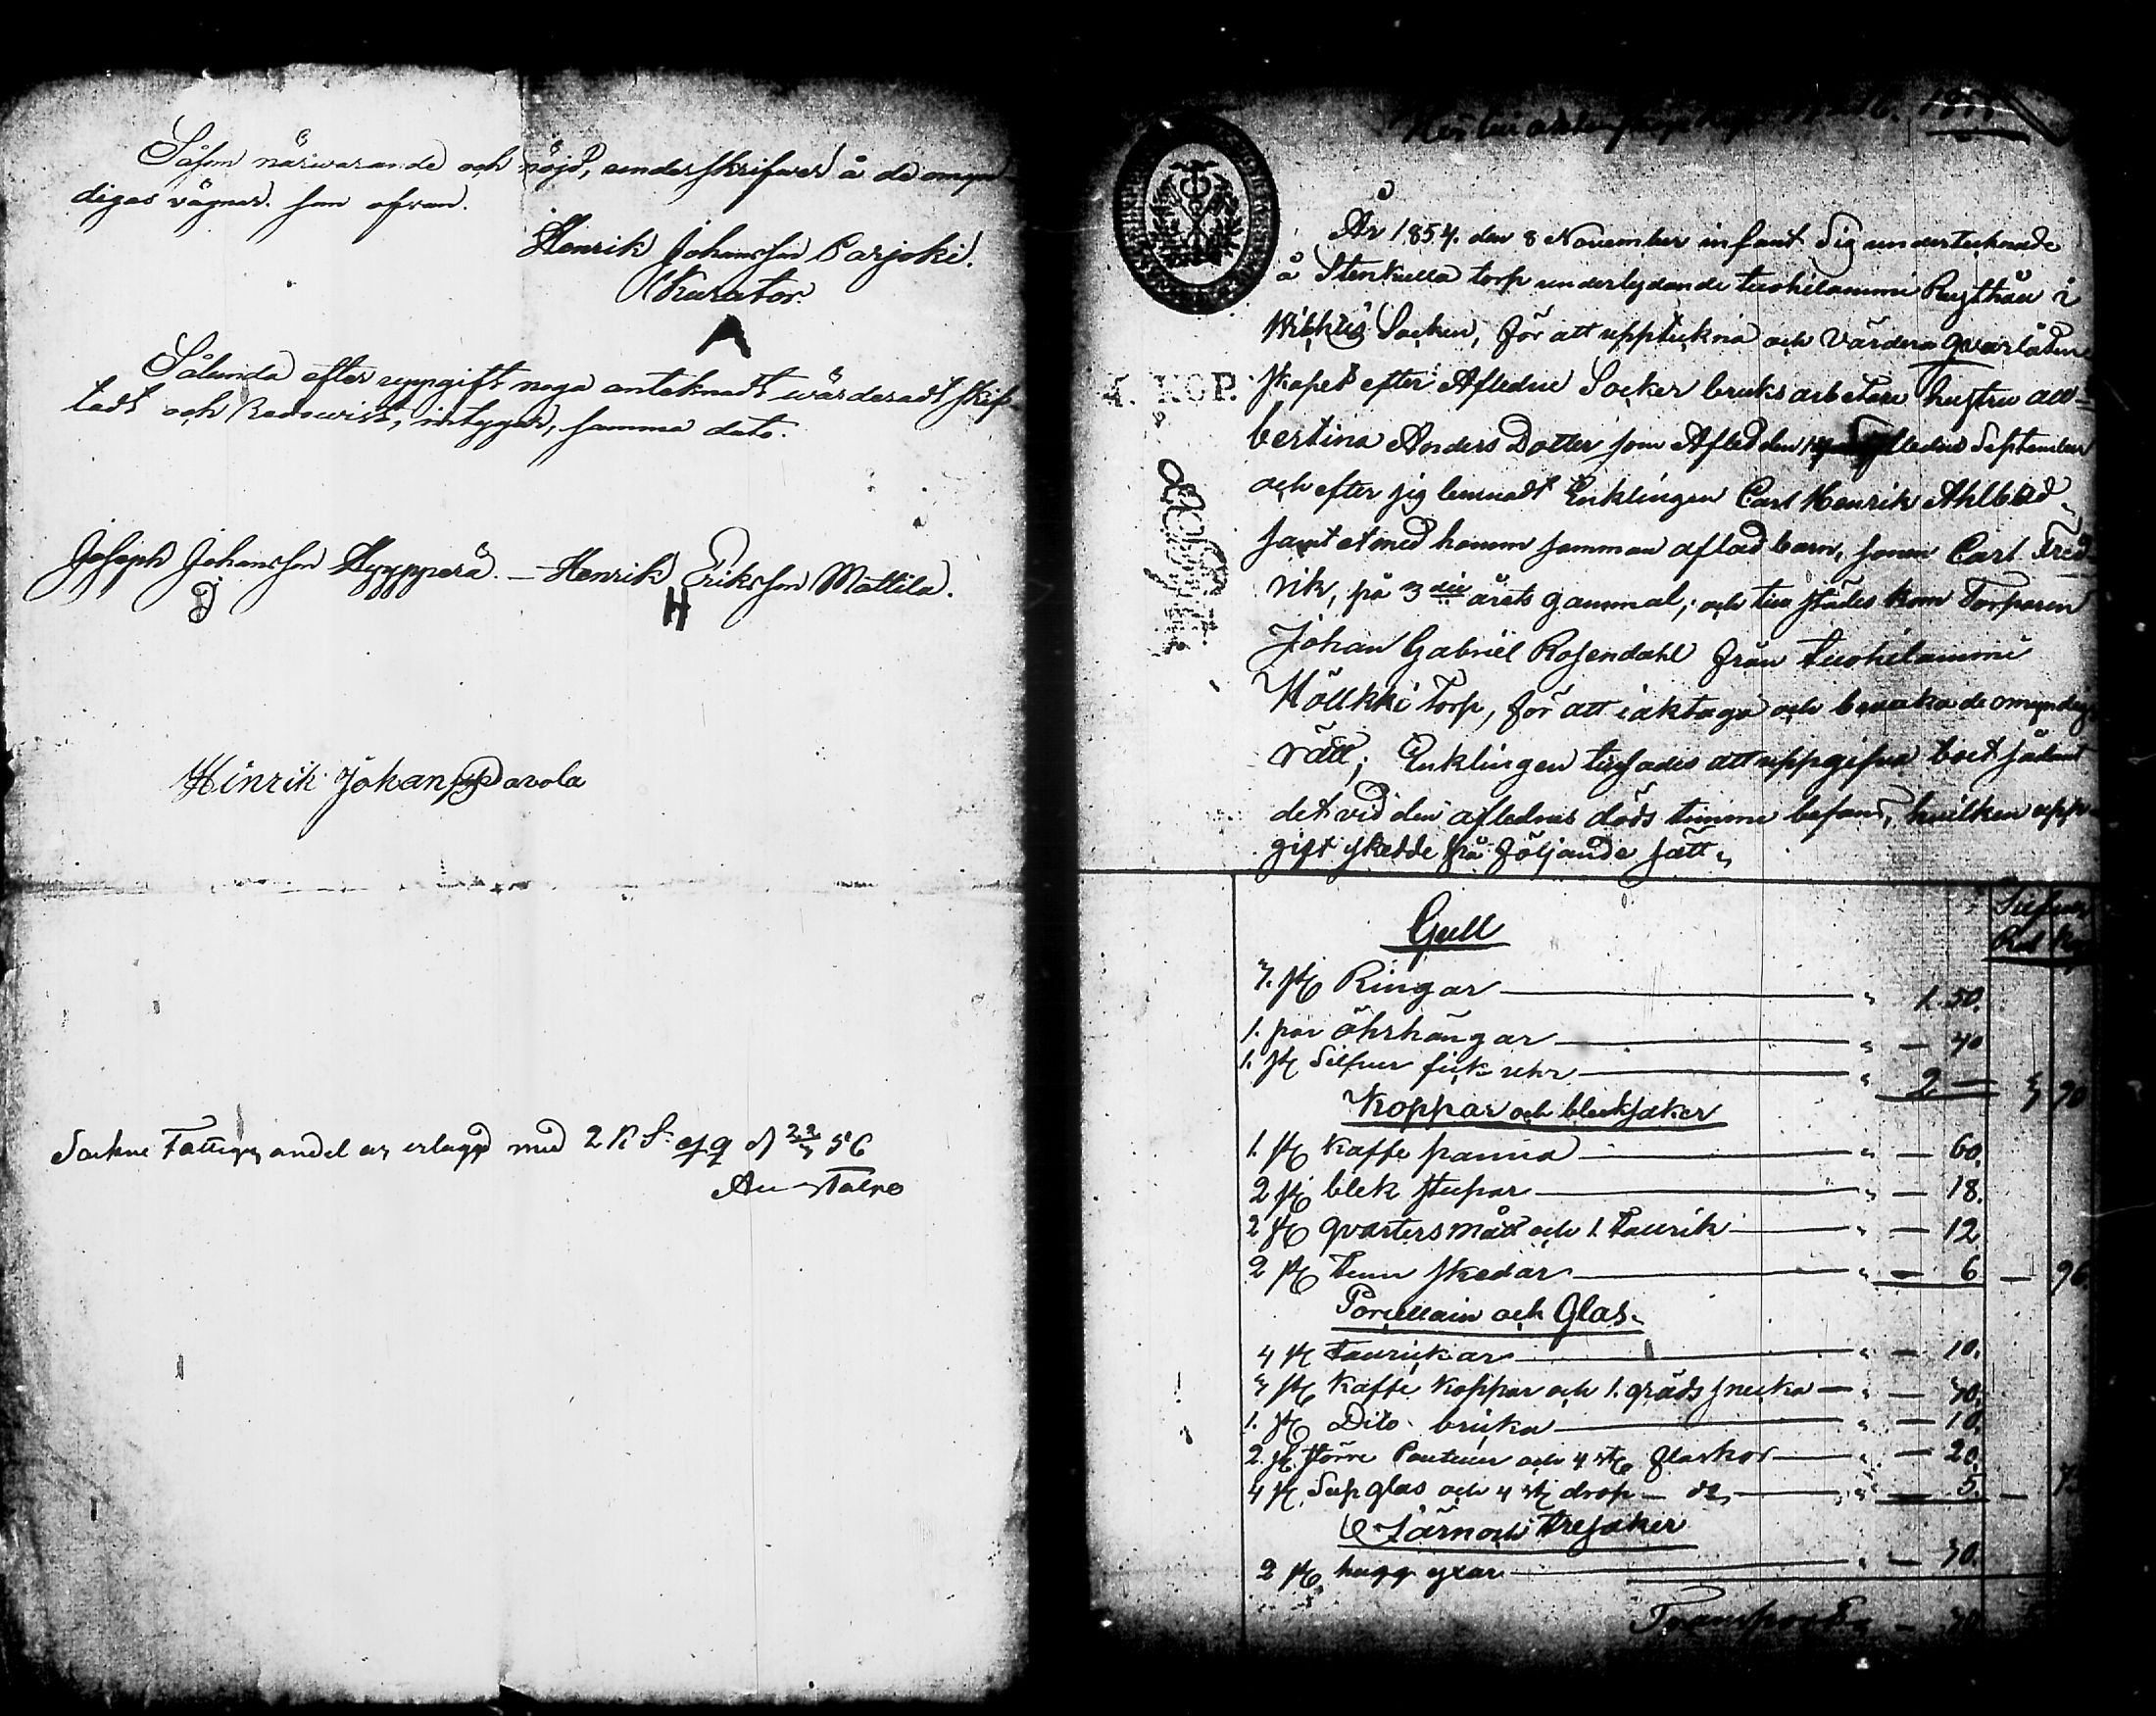 Såsom närwarande och nöjd, underskrifwer å de omyn-
digas vägnar. som ofwan.
Henrik Johansson Parjoki.
Kurator.
Sålunda efter uppgift noga antecknadt wärderadt skif-
tadt och Redowist, intygar, samma dato.
Joseph Johansson Hyppperä. — Henrik Eriksson Mattila.
H
Hinrik Johansson Pavola
Sockne Fattigas andel är erlagd med 2 K S:
56
År 1854. den 8 November infant Sig undertecknade
å Stenkulla torp underlydande tuohilammi Rusthåll i
Wichtis Socken, för att uppteckna och Värdera qvarlåten
4. KOP.
skapet efter Afledne Socker bruks arbetare hustru All
bertina Anders Dotter som Afled den September
och efter sig lemnadt Enklingen Carl Henrik Ahlblad
samt et med honom samman aflad barn, sonen Carl Fred
rik, på 3 die årets gammal; och till städes kom Torparen
Johan Gabriel Rosendahl från tuohilammi
Hölkki Torp, för att iaktaga och bevaka de omyndigas
rätt; Enklingen tillsades att uppgifva boet sådant
det vid den aflednas döds timme befans, hvilken upp-
gift skedde på följande sätt
Silfver
Rub Kop
Gull
7. st Ringar — " 1. 50.
1. par öhrhängar — " — 40
1. st Silfver fick uhr — " 2 — 3 90
Koppar och bleksaker
1. st Kaffe panna — " — 60.
2 st blek stupar — " — 18.
2 st qvarters mått och 1. Taurik — " — 12
2 st Tenn skedar — " — 6 — 96
Porcellain och Glas.
4 st Taurickar — " — 10.
3 st Kaffe Koppar och 1. grädd snecka — " — 30.
1. st Dito bricka — " — 10.
2. st större Pouteller och 4 st flaskor — " — 20.
4 st Sup glas och 4 st drop — do — " — 5. —
Järn och Träsaker
2 st hugg yxar — " — 30.
Transport — 30.